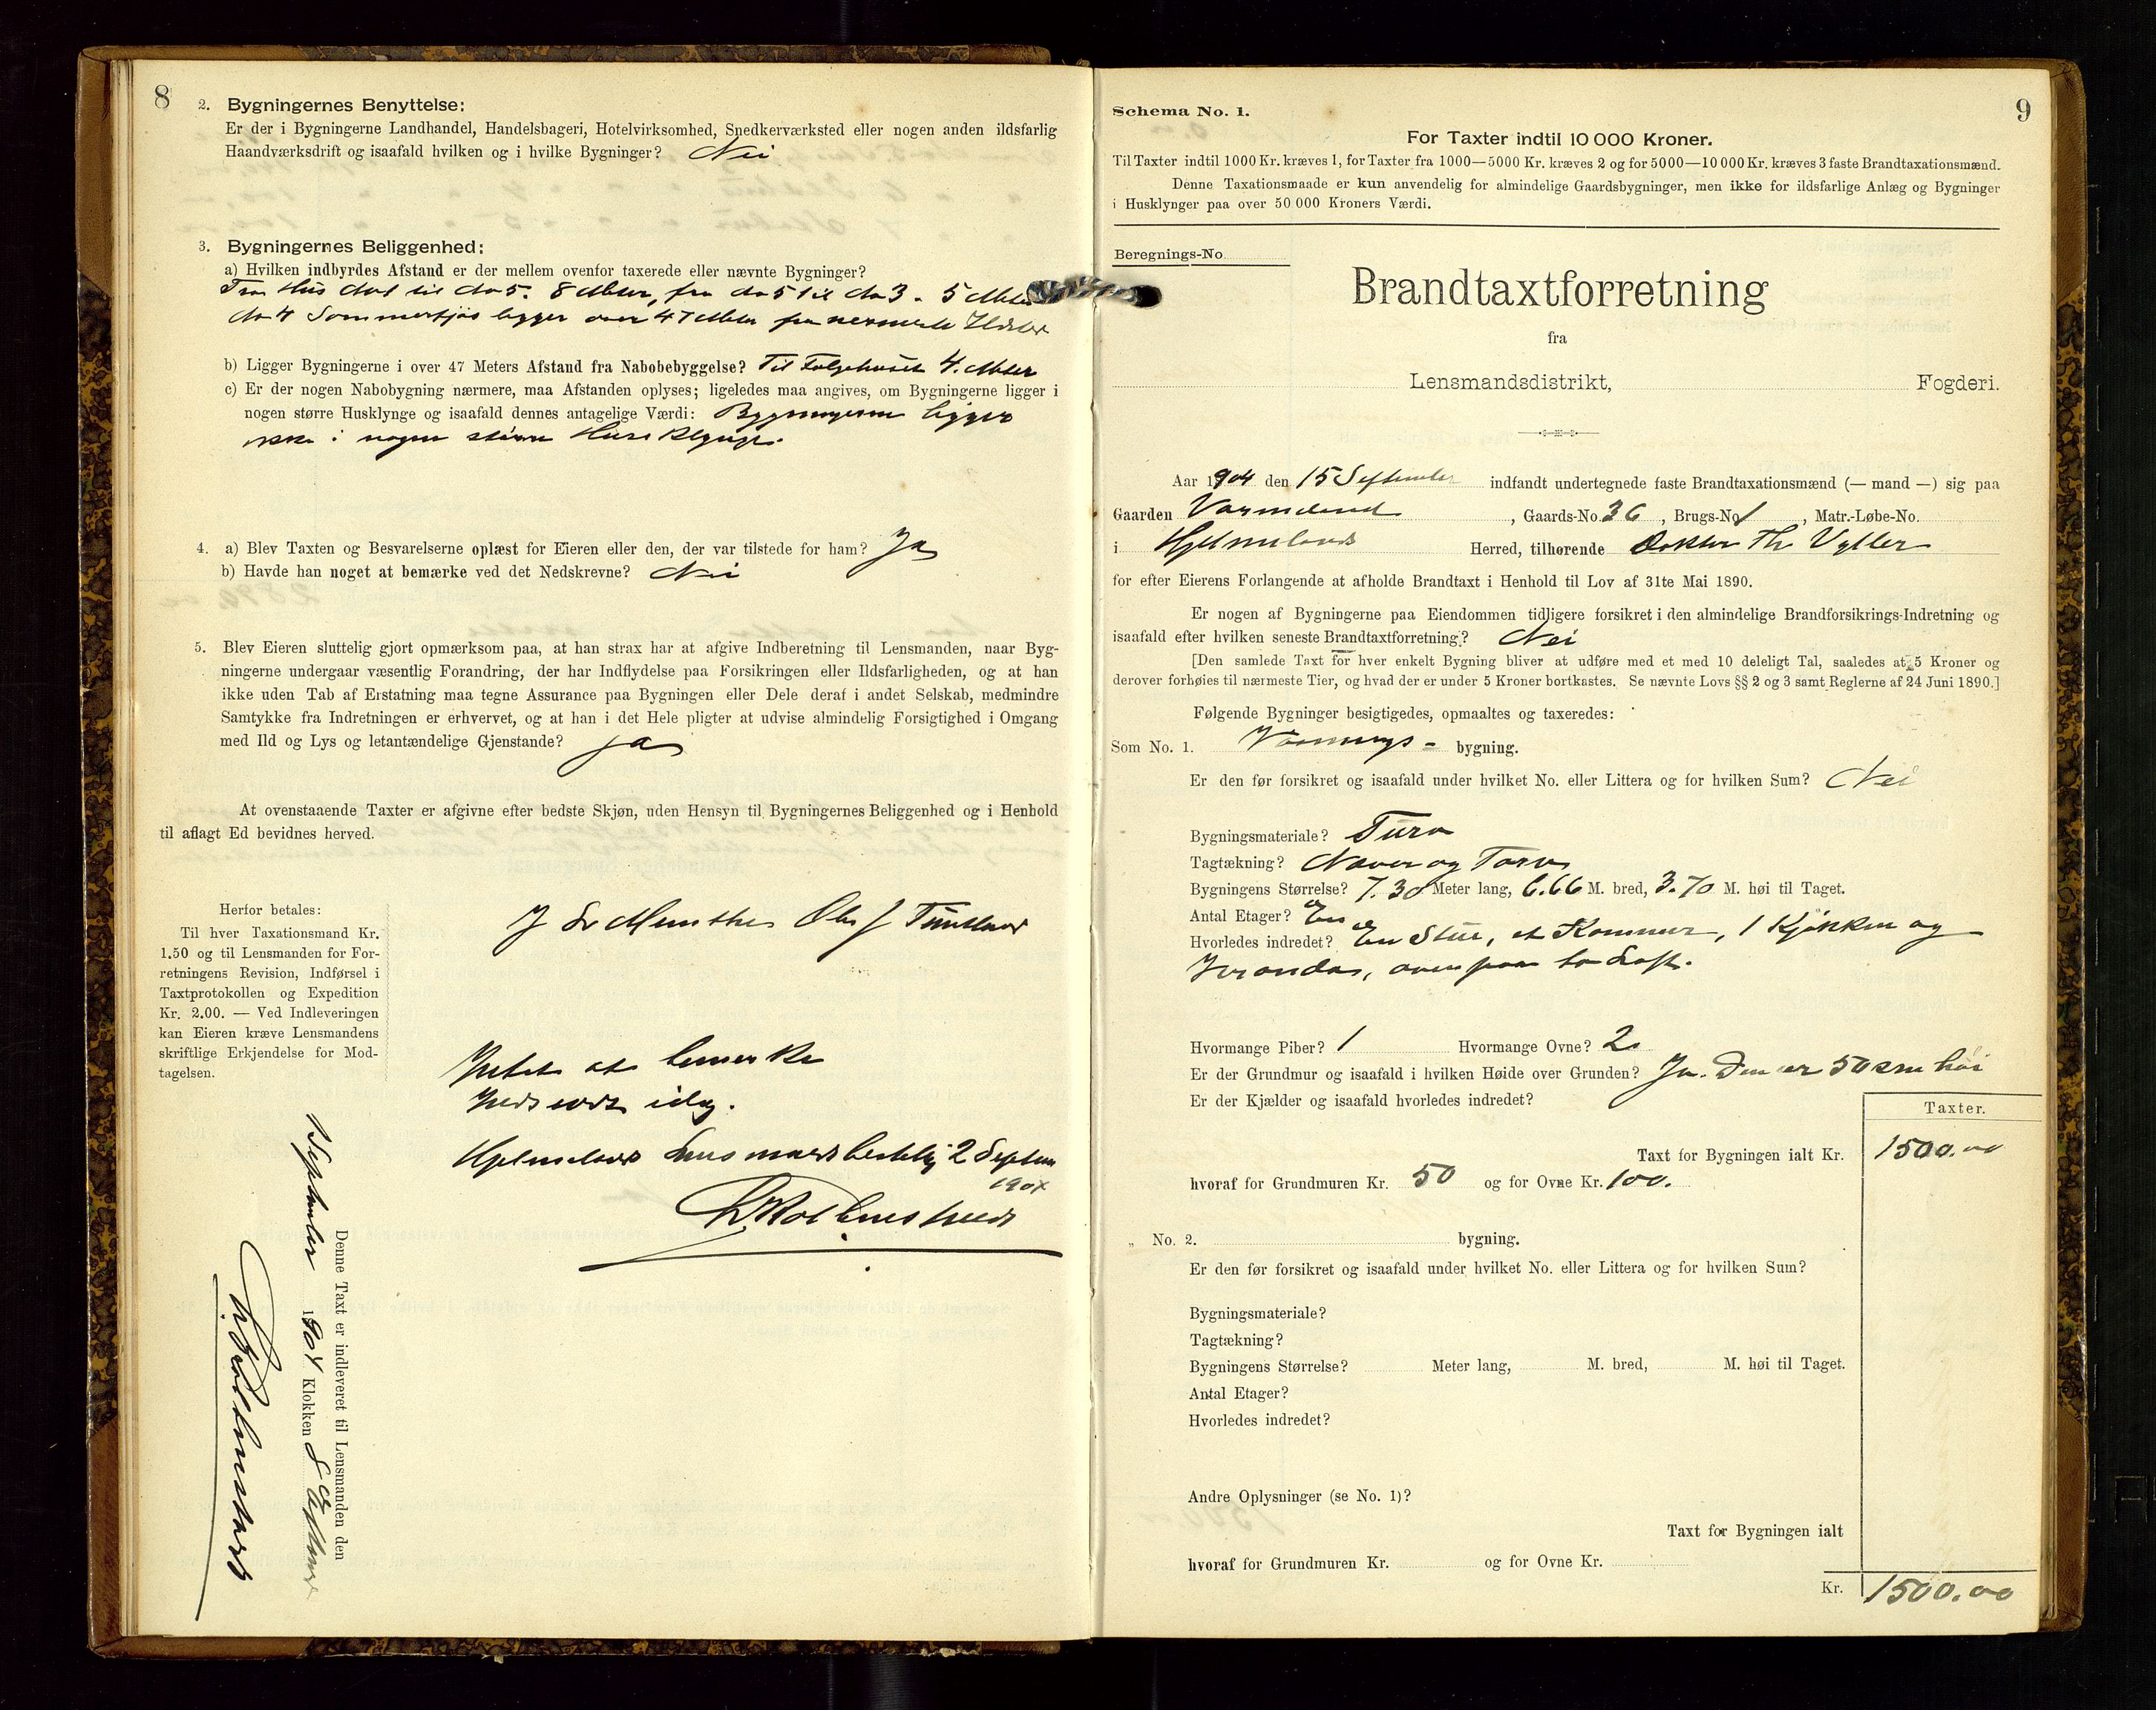 8
2. Bygningernes Benyttelse:
Er der i Bygningerne Landhandel, Handelsbageri, Hotelvirksomhed, Snedkerværksted eller nogen anden ildsfarlig
Haandværksdrift og isaafald hvilken og i hvilke Bygninger? Nei
3. Bygningernes Beliggenhed:
a) Hvilken indbyrdes Afstand er der mellem ovenfor taxerede eller nævnte Bygninger?
Fra Hus do 1 til do 5. 8 Meter, fra do 5 til do 3. 5 Meter
do 4 Sommerfjøs ligger over 47 Meter fra nermeste
b) Ligger Bygningerne i over 47 Meters Afstand fra Nabobebyggelse? Til Folgehuset 4. Meter
c) Er der nogen Nabobygning nærmere, maa Afstanden oplyses; ligeledes maa angives, om Bygningerne ligger i
nogen større Husklynge og isaafald dennes antagelige Værdi: Bygningerne ligger
ikke i nogen større Huseklynge.
4. a) Blev Taxten og Besvarelserne oplæst for Eieren eller den, der var tilstede for ham? Ja
b) Havde han noget at bemærke ved det Nedskrevne? Nei
5. Blev Eieren sluttelig gjort opmærksom paa, at han strax har at afgive Indberetning til Lensmanden, naar Byg-
ningerne undergaar væsentlig Forandring, der har Indflydelse paa Forsikringen eller Ildsfarligheden, og at han
ikke uden Tab af Erstatning maa tegne Assurance paa Bygningen eller Dele deraf i andet Selskab, medmindre
Samtykke fra Indretningen er erhvervet, og at han i det Hele pligter at udvise almindelig Forsigtighed i Omgang
med Ild og Lys og letantændelige Gjenstande? Ja
At ovenstaaende Taxter er afgivne efter bedste Skjøn, uden Hensyn til Bygningernes Beliggenhed og i Henhold
til aflagt Ed bevidnes herved.
Herfor betales:
Til hver Taxationsmand Kr.
1.50 og til Lensmanden for For-
retningens Revision, Indførsel i
Taxtprotokollen og Expedition
Kr. 2.00. — Ved Indleveringen
kan Eieren kræve Lensmandens
skriftlige Erkjendelse for Mod-
tagelsen.
Munthe Ole J
Intet at bemerke
idag.
Hjelmeland Lensmandsbestilling 2 Septem
1904
Denne Taxt er indleveret til Lensmanden den
September 1904 Klokken 8 Efterm
9
Schema No. 1.
For Taxter indtil 10 000 Kroner.
Til Taxter indtil 1000 Kr. kræves 1, for Taxter fra 1000—5000 Kr. kræves 2 og for 5000—10 000 Kr. kræves 3 faste Brandtaxationsmænd.
Denne Taxationsmaade er kun anvendelig for almindelige Gaardsbygninger, men ikke for ildsfarlige Anlæg og Bygninger
i Husklynger paa over 50 000 Kroners Værdi.
Beregnings-No
Brandtaxtforretning
fra
Lensmandsdistrikt, Fogderi.
Aar 1904 den 15 September indfandt undertegnede faste Brandtaxationsmænd (— mand —) sig paa
Gaarden , Gaards-No. 36 , Brugs-No 1 , Matr.-Løbe-No.
i Hjelmelands Herred, tilhørende Doktor Th
for efter Eierens Forlangende at afholde Brandtaxt i Henhold til Lov af 31te Mai 1890.
Er nogen af Bygningerne paa Eiendommen tidligere forsikret i den almindelige Brandforsikrings-Indretning og
isaafald efter hvilken seneste Brandtaxtforretning? Nei
[Den samlede Taxt for hver enkelt Bygning bliver at udføre med et med 10 deleligt Tal, saaledes at 5 Kroner og
derover forhøies til nærmeste Tier, og hvad der er under 5 Kroner bortkastes. Se nævnte Lovs §§ 2 og 3 samt Reglerne af 24 Juni 1890.]
Følgende Bygninger besigtigedes, opmaaltes og taxeredes:
Som No. 1. Vaanings- bygning.
Er den før forsikret og isaafald under hvilket No. eller Littera og for hvilken Sum? Nei
Bygningsmateriale? Furu
Tagtækning? Næver og Torv
Bygningens Størrelse? 7.30 Meter lang, 6.66 M. bred, 3.70 M. høi til Taget.
Antal Etager? En
Hvorledes indredet? En Stue, et Kammer, 1 Kjøkken og
Veranda, ovenpaa to Loft.
Hvormange Piber? 1 Hvormange Ovne? 2
Er der Grundmur og isaafald i hvilken Høide over Grunden? Ja. Den er 50 cm høi
Er der Kjælder og isaafald hvorledes indredet?
Taxter.
Taxt for Bygningen ialt Kr. 1500.00
hvoraf for Grundmuren Kr. 50 og for Ovne Kr. 100.
„ No. 2. bygning.
Er den før forsikret og isaafald under hvilket No. eller Littera og for hvilken Sum?
Bygningsmateriale?
Tagtækning?
Bygningens Størrelse? Meter lang, M. bred, M. høi til Taget.
Antal Etager?
Hvorledes indredet?
Andre Oplysninger (se No. 1)?
Taxt for Bygningen ialt
hvoraf for Grundmuren Kr. og for Ovne Kr.
Kr. 1500.00